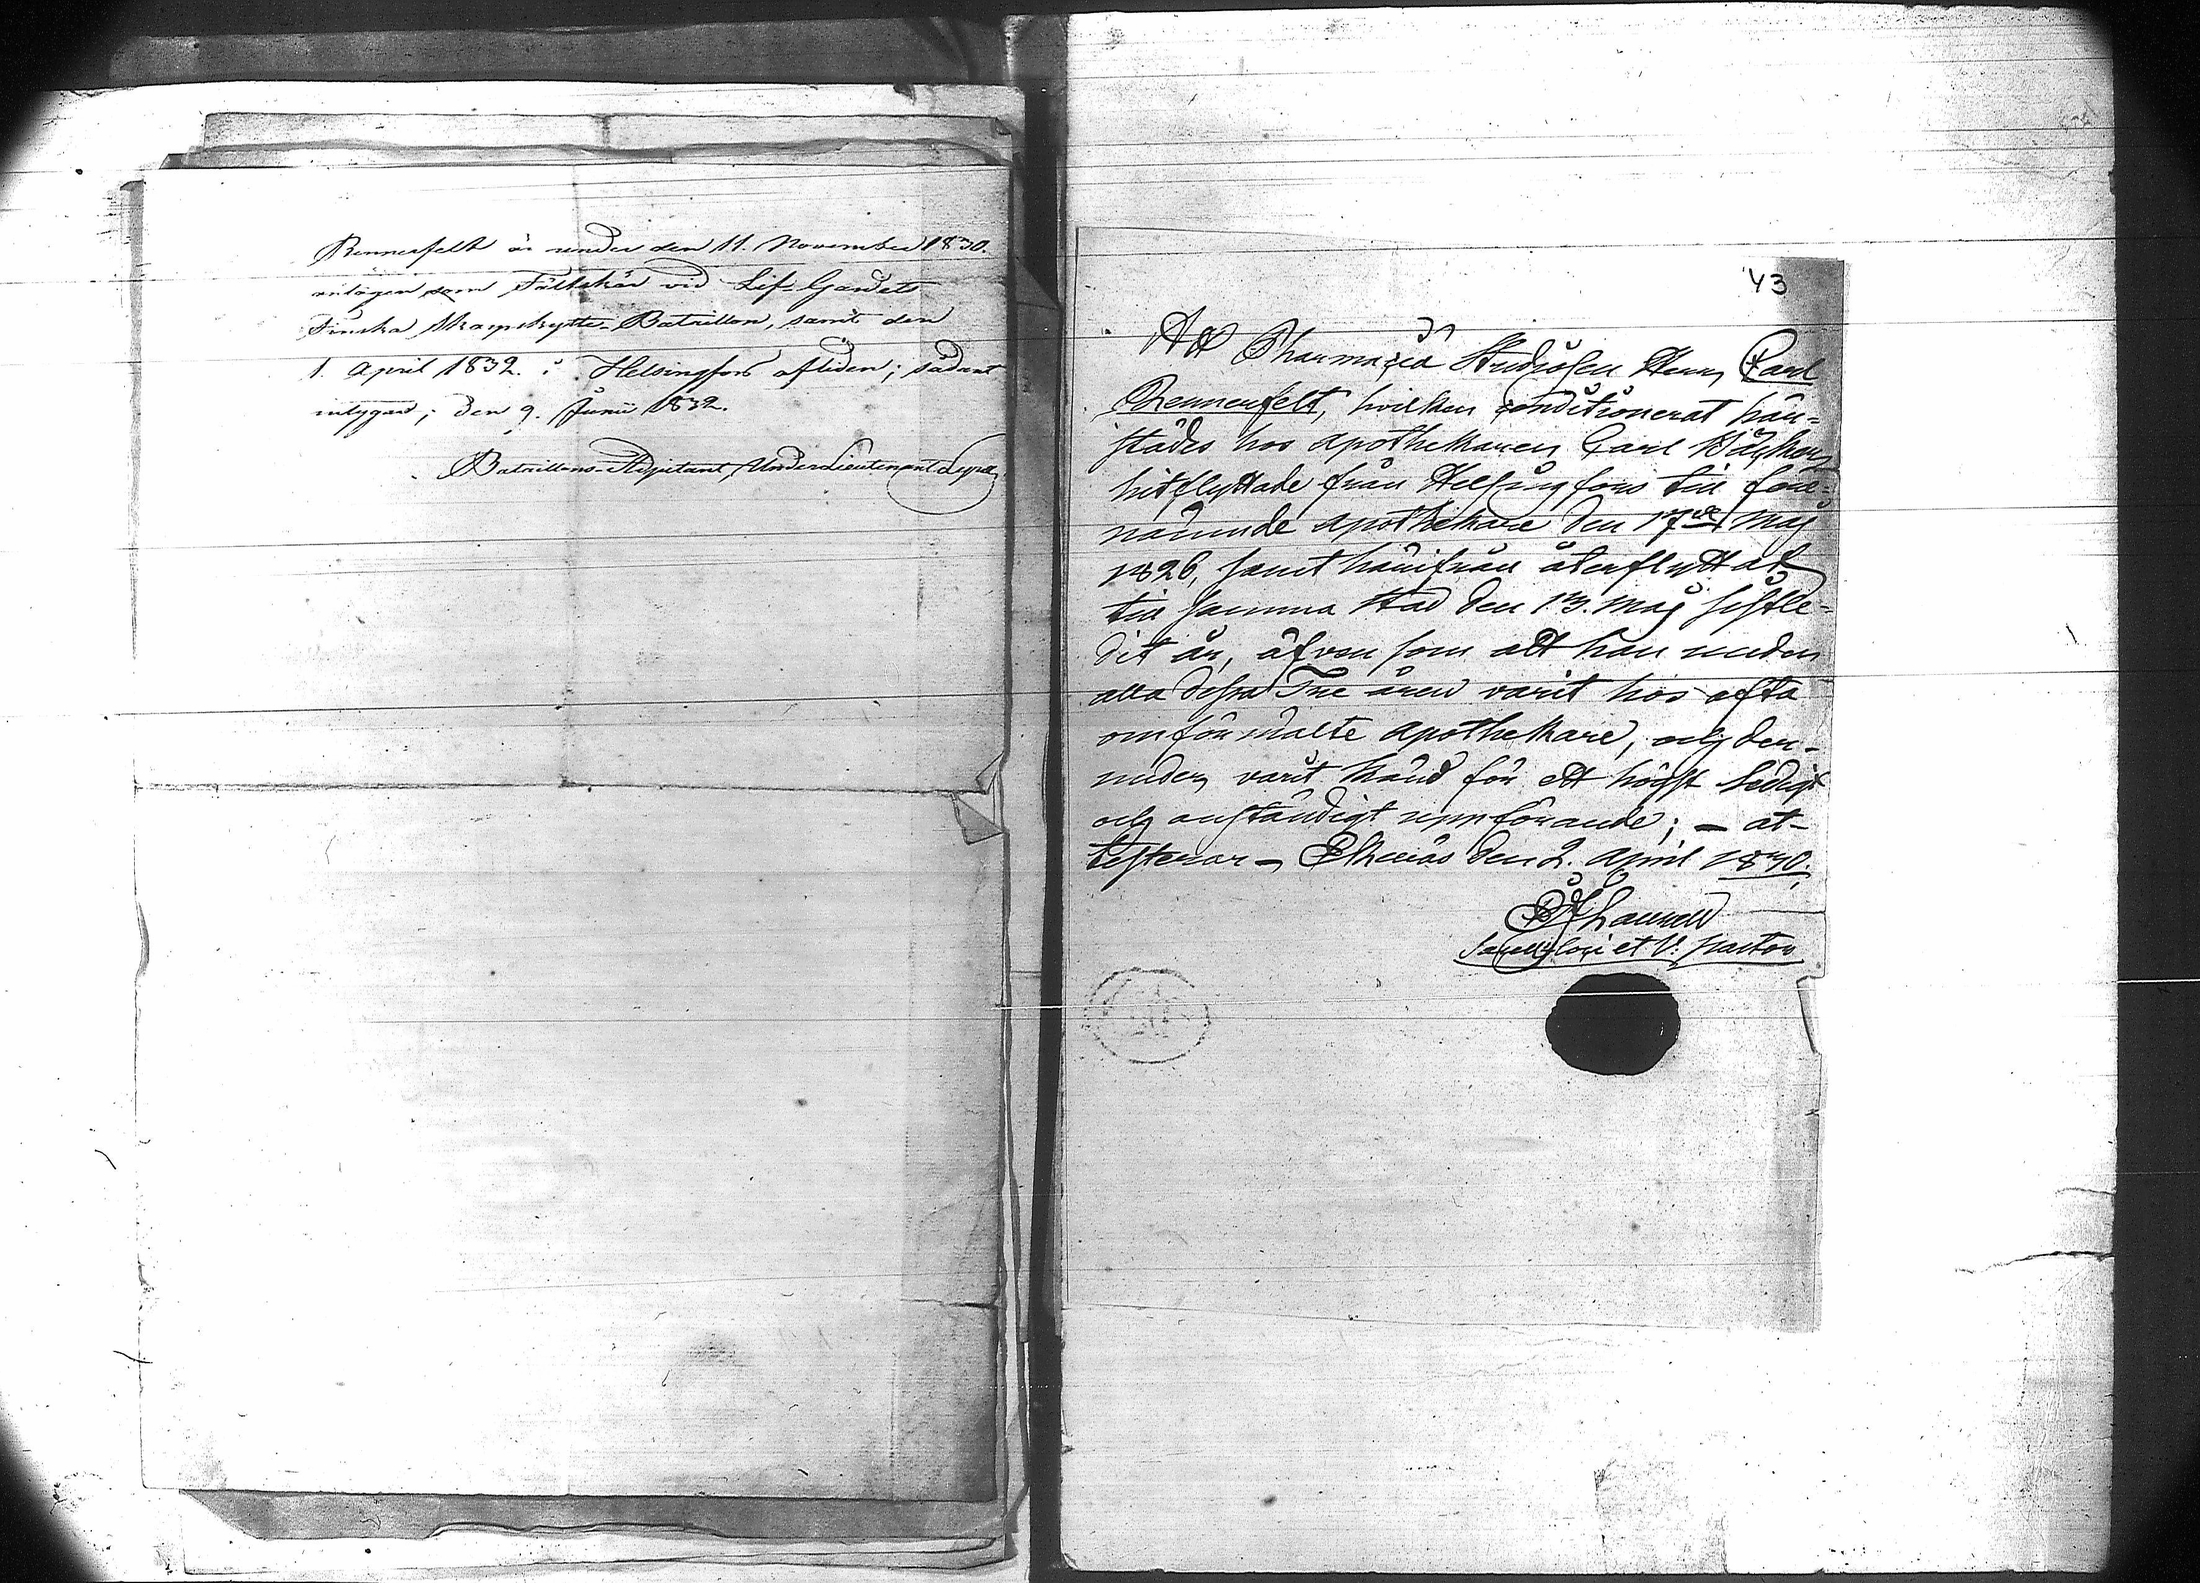 Rennerfelt är under den 11. November 1830.
antagen som Fältskär vid Lif-Gardets
Finska Skarpskytte-Bataillon, samt den
1. April 1832. i Helsingfors afliden; sådant
intygas; den 9. Junii 1832.
Bataillons-Adjutant, UnderLieutenant
43
Att Pharmaciæ Studiosen Herr Carl
Rennerfelt, hvilken conditionerat här-
städes hos Apothekaren Carl
hitflyttade från Helsingfors till före-
nämnde Apothekare den 17de Maj
1826, samt härifrån återflyttat
till samma Stad den 13. Maj sistle-
dit år, äfven som att han under
alla dessa Tre åren varit hos ofta
omförmälte Apothekare, och der-
under varit känd för ett högst sedigt
och anständigt uppförande; – at-
testerar – Ekenäs den 2. April 1830.
Sacell. loci et V. pastor